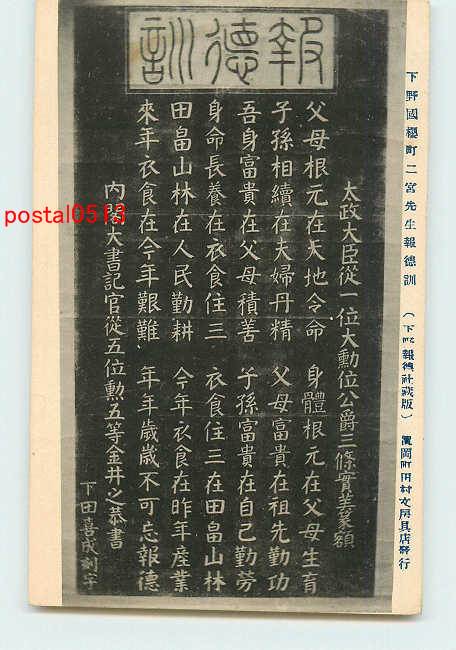 下野國櫻町二宮先生報德訓
報德訓
太政大臣從一位大勳位公爵三條實美篆額
父母根元在天地令命 身體根元在父母生育
子孫相續在夫婦丹精 父母富貴在祖先勤功
吾身富貴在父母積善 子孫富貴在自己勤勞
身命長養在衣食住三 衣食住三在田畠山林
田畠山林在人民勤耕 今年衣食在昨年産業
來年衣食在今年艱難 年年歲歲不可忘報德
內閣大書記官從五位勳五等金井之恭書
下田喜成刻字
postal0513